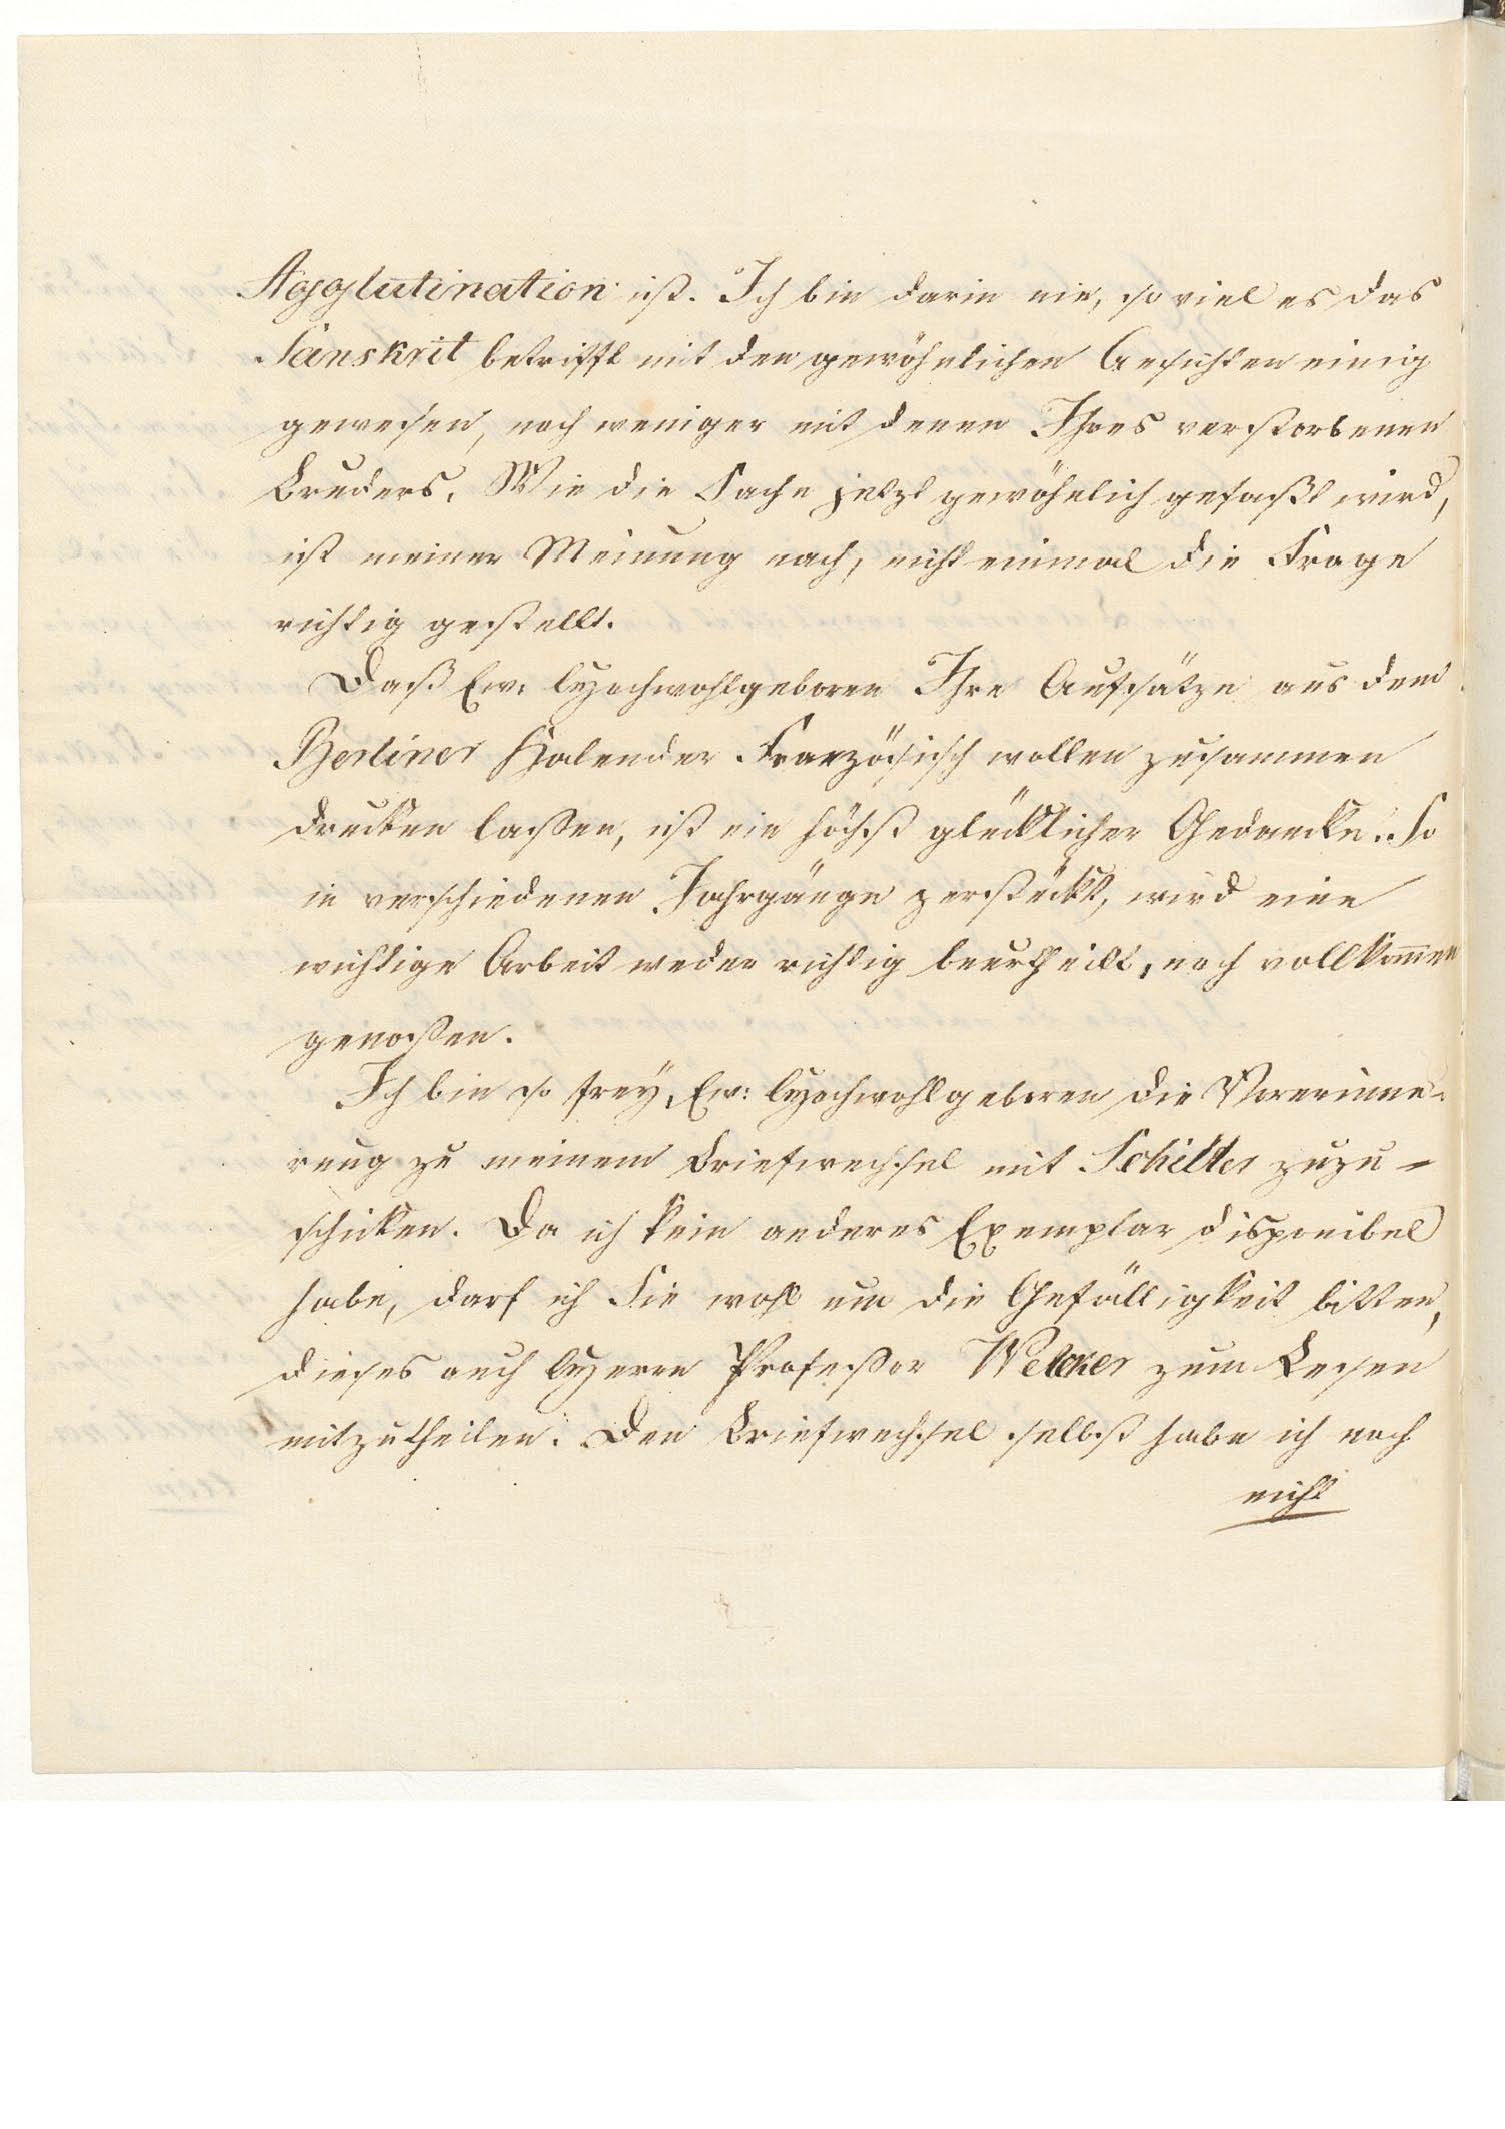 Agglutination ist. Ich bin darin nie, so viel es das
Sanskrit betrifft mit den gewöhnlichen Ansichten einig
gewesen, noch weniger mit denen Ihres verstorbenen
Bruders. Wie die Sache jetzt gewöhnlich gefaßt wird,
ist meiner Meinung nach, nicht einmal die Frage
richtig gestellt.
Daß Ew. Hochwohlgeboren Ihre Aufsätze aus dem
Berliner Kalender Französisch wollen zusammen
drucken laßen, ist ein höchst glücklicher Gedancke. So
in verschiedenen Jahrgänge zerstückt, wird eine
wichtige Arbeit weder richtig beurtheilt, noch vollkom̅en
genoßen.
Ich bin so frey, Ew: Hochwohlgeboren die Vorerinne-
rung zu meinem Briefwechsel mit Schiller zuzu-
schicken. Da ich kein anderes Exemplar disponibel
habe, darf ich Sie wohl um die Gefälligkeit bitten,
dieses auch Herrn Profeßor Welcker zum Lesen
mitzutheilen. Den Briefwechsel selbst habe ich noch
nicht